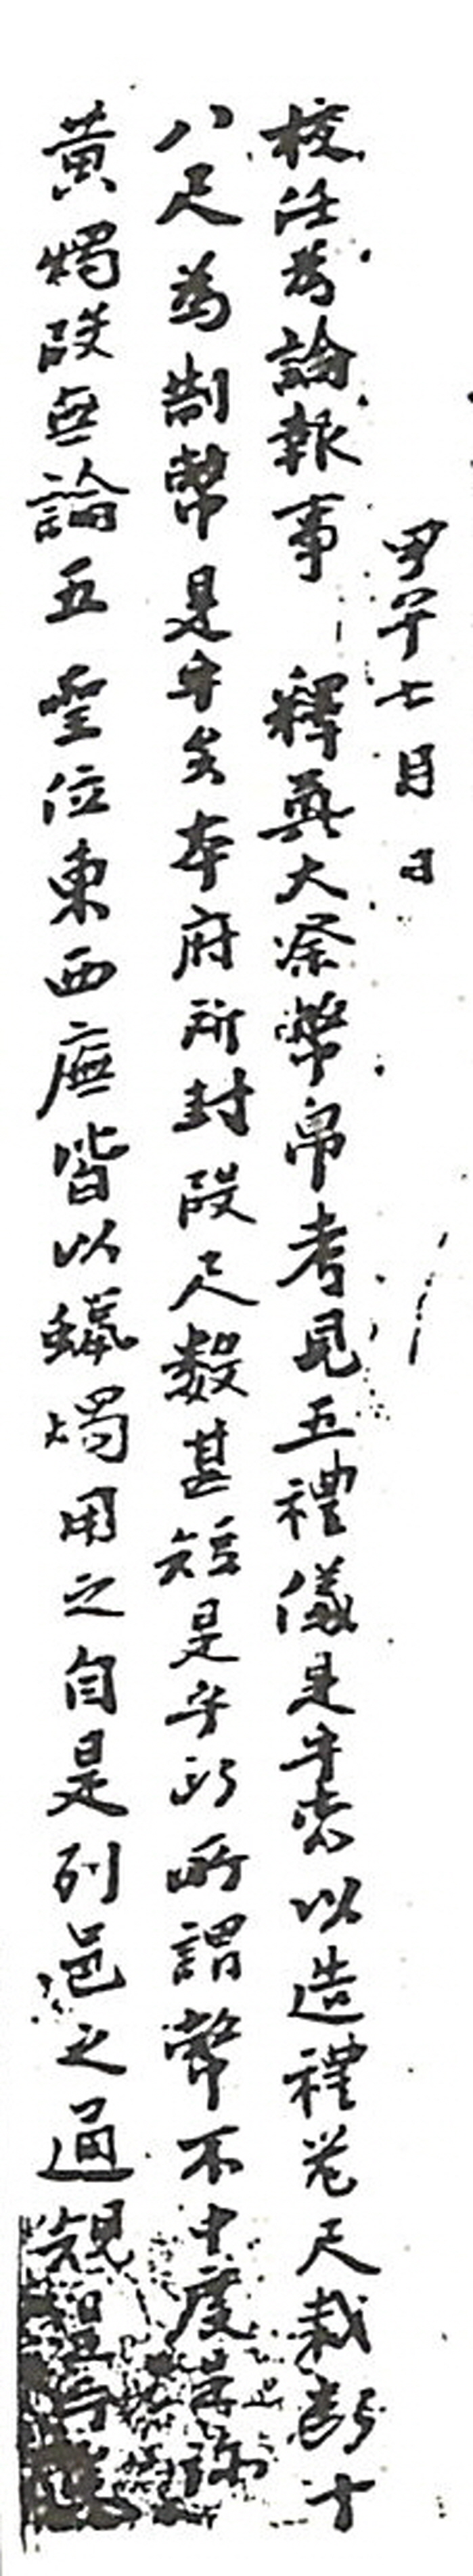 甲子七月 日
校任爲論報事 釋奠大祭幣帛考見五禮儀是乎矣以造禮器尺裁斷十
八尺爲制幣是乎矣本府所封段尺數甚短是乎所所謂幣不中度
黃燭段無論五聖位東西廡皆以蠟燭用之自是列邑之通規是乎